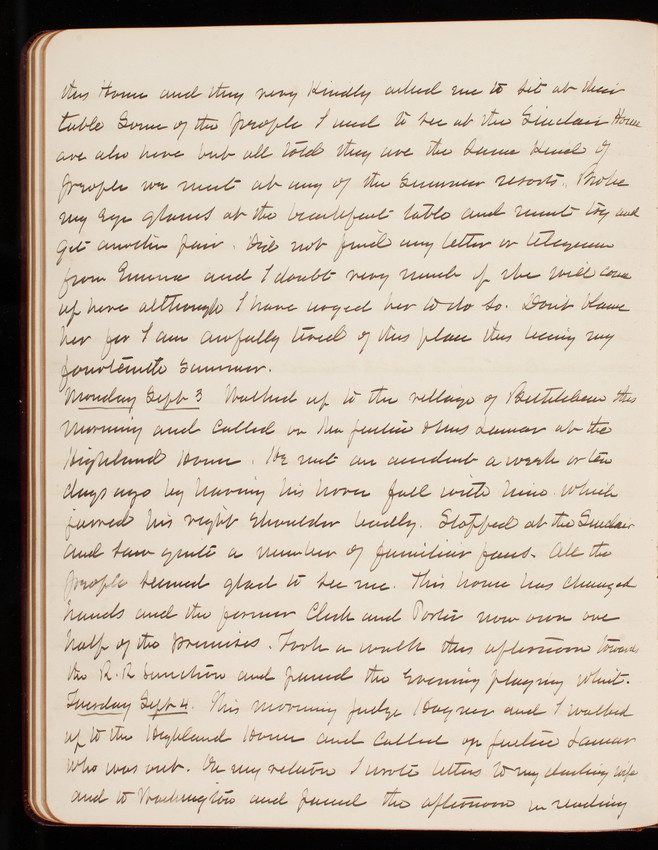 this House and they very kindly asked me to sit at their
table Some of the people I used to see at the Sinclair House
are also here but all told they are the same kind of
people we meet at any of the Summer resorts. Broke
my eye glasses at the breakfast table and must try and
get another pair. Did not find any letter or telegram
from Emma and I doubt very much if she will come
up here although I have urged her to do so. Dont blame
her for I am awfully tired of this place this being my
fourteenth Summer.
Monday Sept 3 Walked up to the village of Bethlehem this
morning and called on Mr Justice & Mrs Lamar at the
Highland House. He met an accident a week or ten
days ago by having his horse fall with him which
jarred his right shoulder badly. Stopped at the Sinclair
and saw quite a number of familiar faces. All the
people seemed glad to see me. This house has changed
hands and the former Clerk and Porter now own one
half of the premises. Took a walk this afternoon toward
the R.R Junction and passed the evening playing whist.
Tuesday Sept 4. This morning Judge Hagner and I walked
up to the Highland House and called on Justice Lamar
who was out. On my return I wrote letters to my darling wife
and to Washington and passed the afternoon in reading